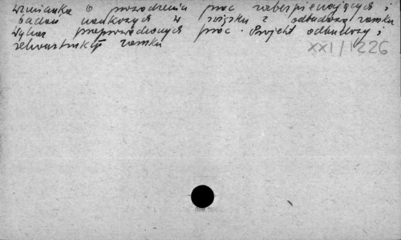 Wzmianka o prowadzeniu prac zabezpieczających i
badań naukowych w związku z odbudową zamku
Wykaz przeprowadzonych prac. Projekt odbudowy i
rekonstrukcji zamku
XXI/1226